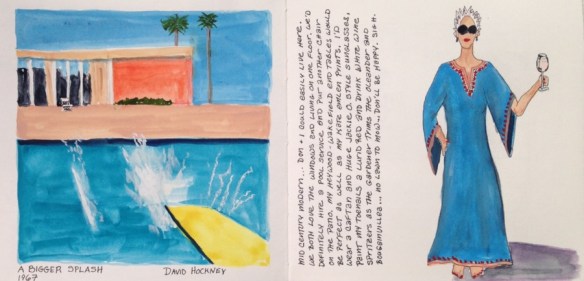 MID CENTURY MODERN... DON + I COULD EASILY LIVE HERE.
WE BOTH LOVE THE WINDOWS AND LIVING ON ONE FLOOR. WE'D
DEFINITELY HIRE A POOL SERVICE AND PUT ANOTHER CHAIR
ON THE PATIO. MY HEYWOOD-WAKEFIELD END TABLES WOULD
BE PERFECT AS WELL AS MY PRINTS. I'D
WEAR A CAFTAN AND HUGE JACKIE O. STYLE SUNGLASSES,
PAINT MY TOENAILS A LURID RED AND DRINK WHITE WINE
SPRITZERS AS THE GARDENER TRIMS THE OLEANDER AND
BOUGENVILLEA... NO LAWN TO MOW... DON'LL BE HAPPY. SIGH.
A BIGGER SPLASH DAVID HOCKNEY
1967